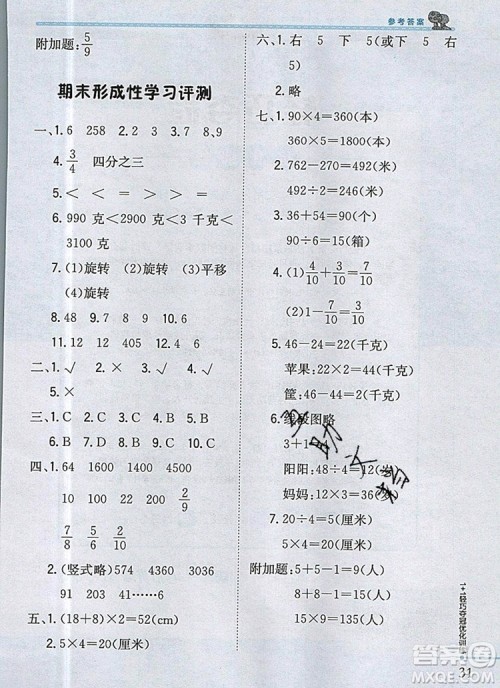 参考答案
附加题:5/9
期末形成性学习评测
一、1.6 258 2.2 3 3.7 8,9
4.3/4 四分之三
5.< < = > < >
6.990克<2900克<3千克<
3100克
7.(1)旋转 (2)旋转 (3)平移
(4)旋转
8.48 9.8 9 10.4 8
11.8 12.6
二、1.✓ 2.× 3.✓ 4.×
三、1.C 2.D 3.C 4.B 5.B
6.B 7.A 8.C 9.B
四、1.54 1600 1500 44 2/9
7/8 5/8 60 6 2/10
2.(竖式略) 574 4030 3036
五、1.(18+8)×2=52(cm)
2.5×4=20(厘米)
六、1.右 5 下 5(或下 5 右
5)
2.略
七、1.90×4=360(本)
360×5=1800(本)
2.762-270=492(米)
492÷2=246(米)
3.36+54=90(箱)
90÷6=15(箱)
4.(1)4/10+3/10=7/10
(2)1-7/10=3/10
5.46-24=22(千克)
苹果:22×2=44(千克)
筐:48-44=4(千克)
6.线段图略
3+1
阳阳:48÷4=12(岁)
妈妈:12×3=36(岁)
7.20÷4=5(厘米)
5×4=20(厘米)
附加题:5+5-1=9(人)
6+4-1=9(人)
9+9-8=10(人)
30÷10=3(组)
1+1轻巧夺冠优化训练
31